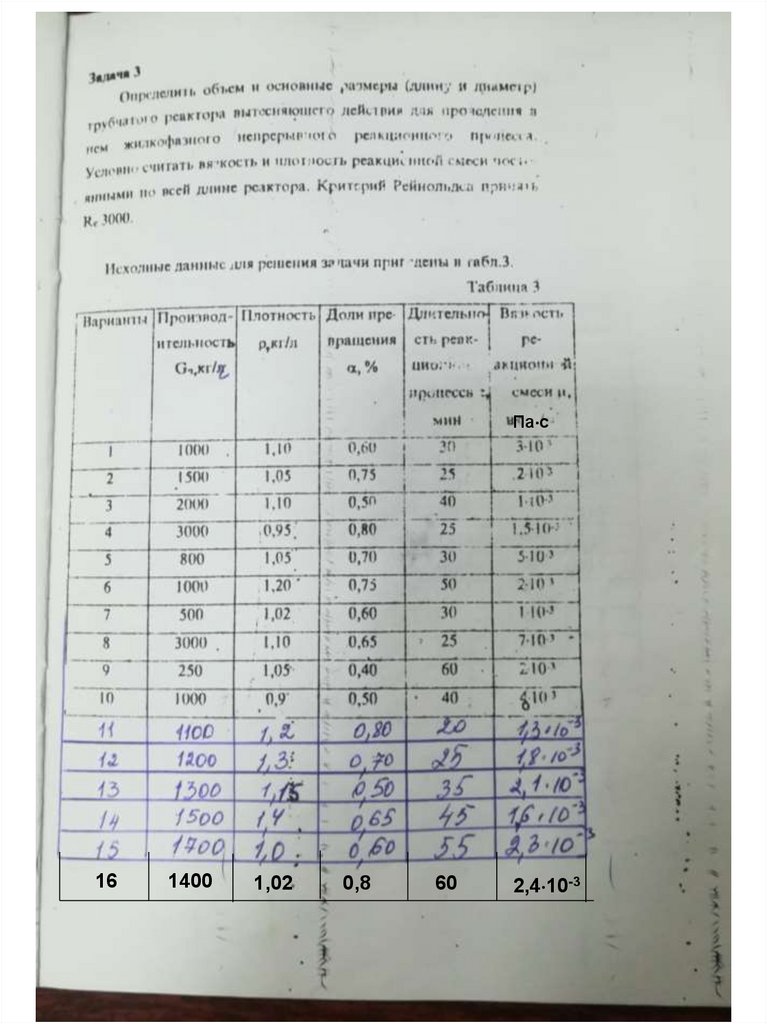 Задача 3
Определить объем и основные размеры (длину и диаметр)
трубчатого реактора вытесняющего действия для проведения в
нем жидкофазного непрерывного реакционного процесса.
Условно считать вязкость и плотность реакционной смеси посто-
янными по всей длине реактора. Критерий Рейнольдса принять
Rе 3000.
Исходные данные для решения задачи приведены в табл.3.
Таблица 3
Варианты Производ- Плотность Доли пре- Длительно- Вязкость
ительность ρ,кг/л вращения сть реак- ре-
G₁,кг/ц α, % акционн й
процесса смеси
мин Па·с
1 1000 1,10 0,60 30 3·10³
2 1500 1,05 0,75 25 2·10³
3 2000 1,10 0,50 40 1·10-³
4 3000 0,95 0,80 25 1,5·10-³
5 800 1,05 0,70 30 5·10³
6 1000 1,20 0,75 50 2·10³
7 500 1,02 0,60 30 1·10-³
8 3000 1,10 0,65 25 7·10-³
9 250 1,05 0,40 60 2·10-³
10 1000 0,9 0,50 40 8·10³
11 1100 1,2 0,80 20 1,3·10⁻³
12 1200 1,3 0,70 25 1,8·10⁻³
13 1300 1,15 0,50 35 2,1·10⁻³
14 1500 1,4 0,65 45 1,6·10⁻³
15 1700 1,0 0,60 55 2,3·10⁻³
16 1400 1,02 0,8 60 2,4·10-³